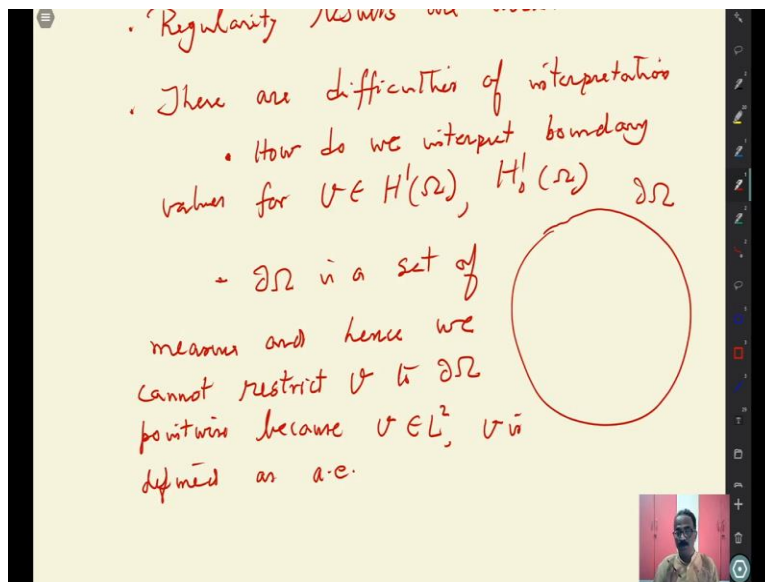 • Regularity results we
• There are difficulties of interpretation
• How do we interpret boundary
values for v ∈ H¹(Ω), H¹₀(Ω) ∂Ω
- ∂Ω is a set of
measure and hence we
cannot restrict v to ∂Ω
pointwise because v ∈ L², v is
defined as a.e.